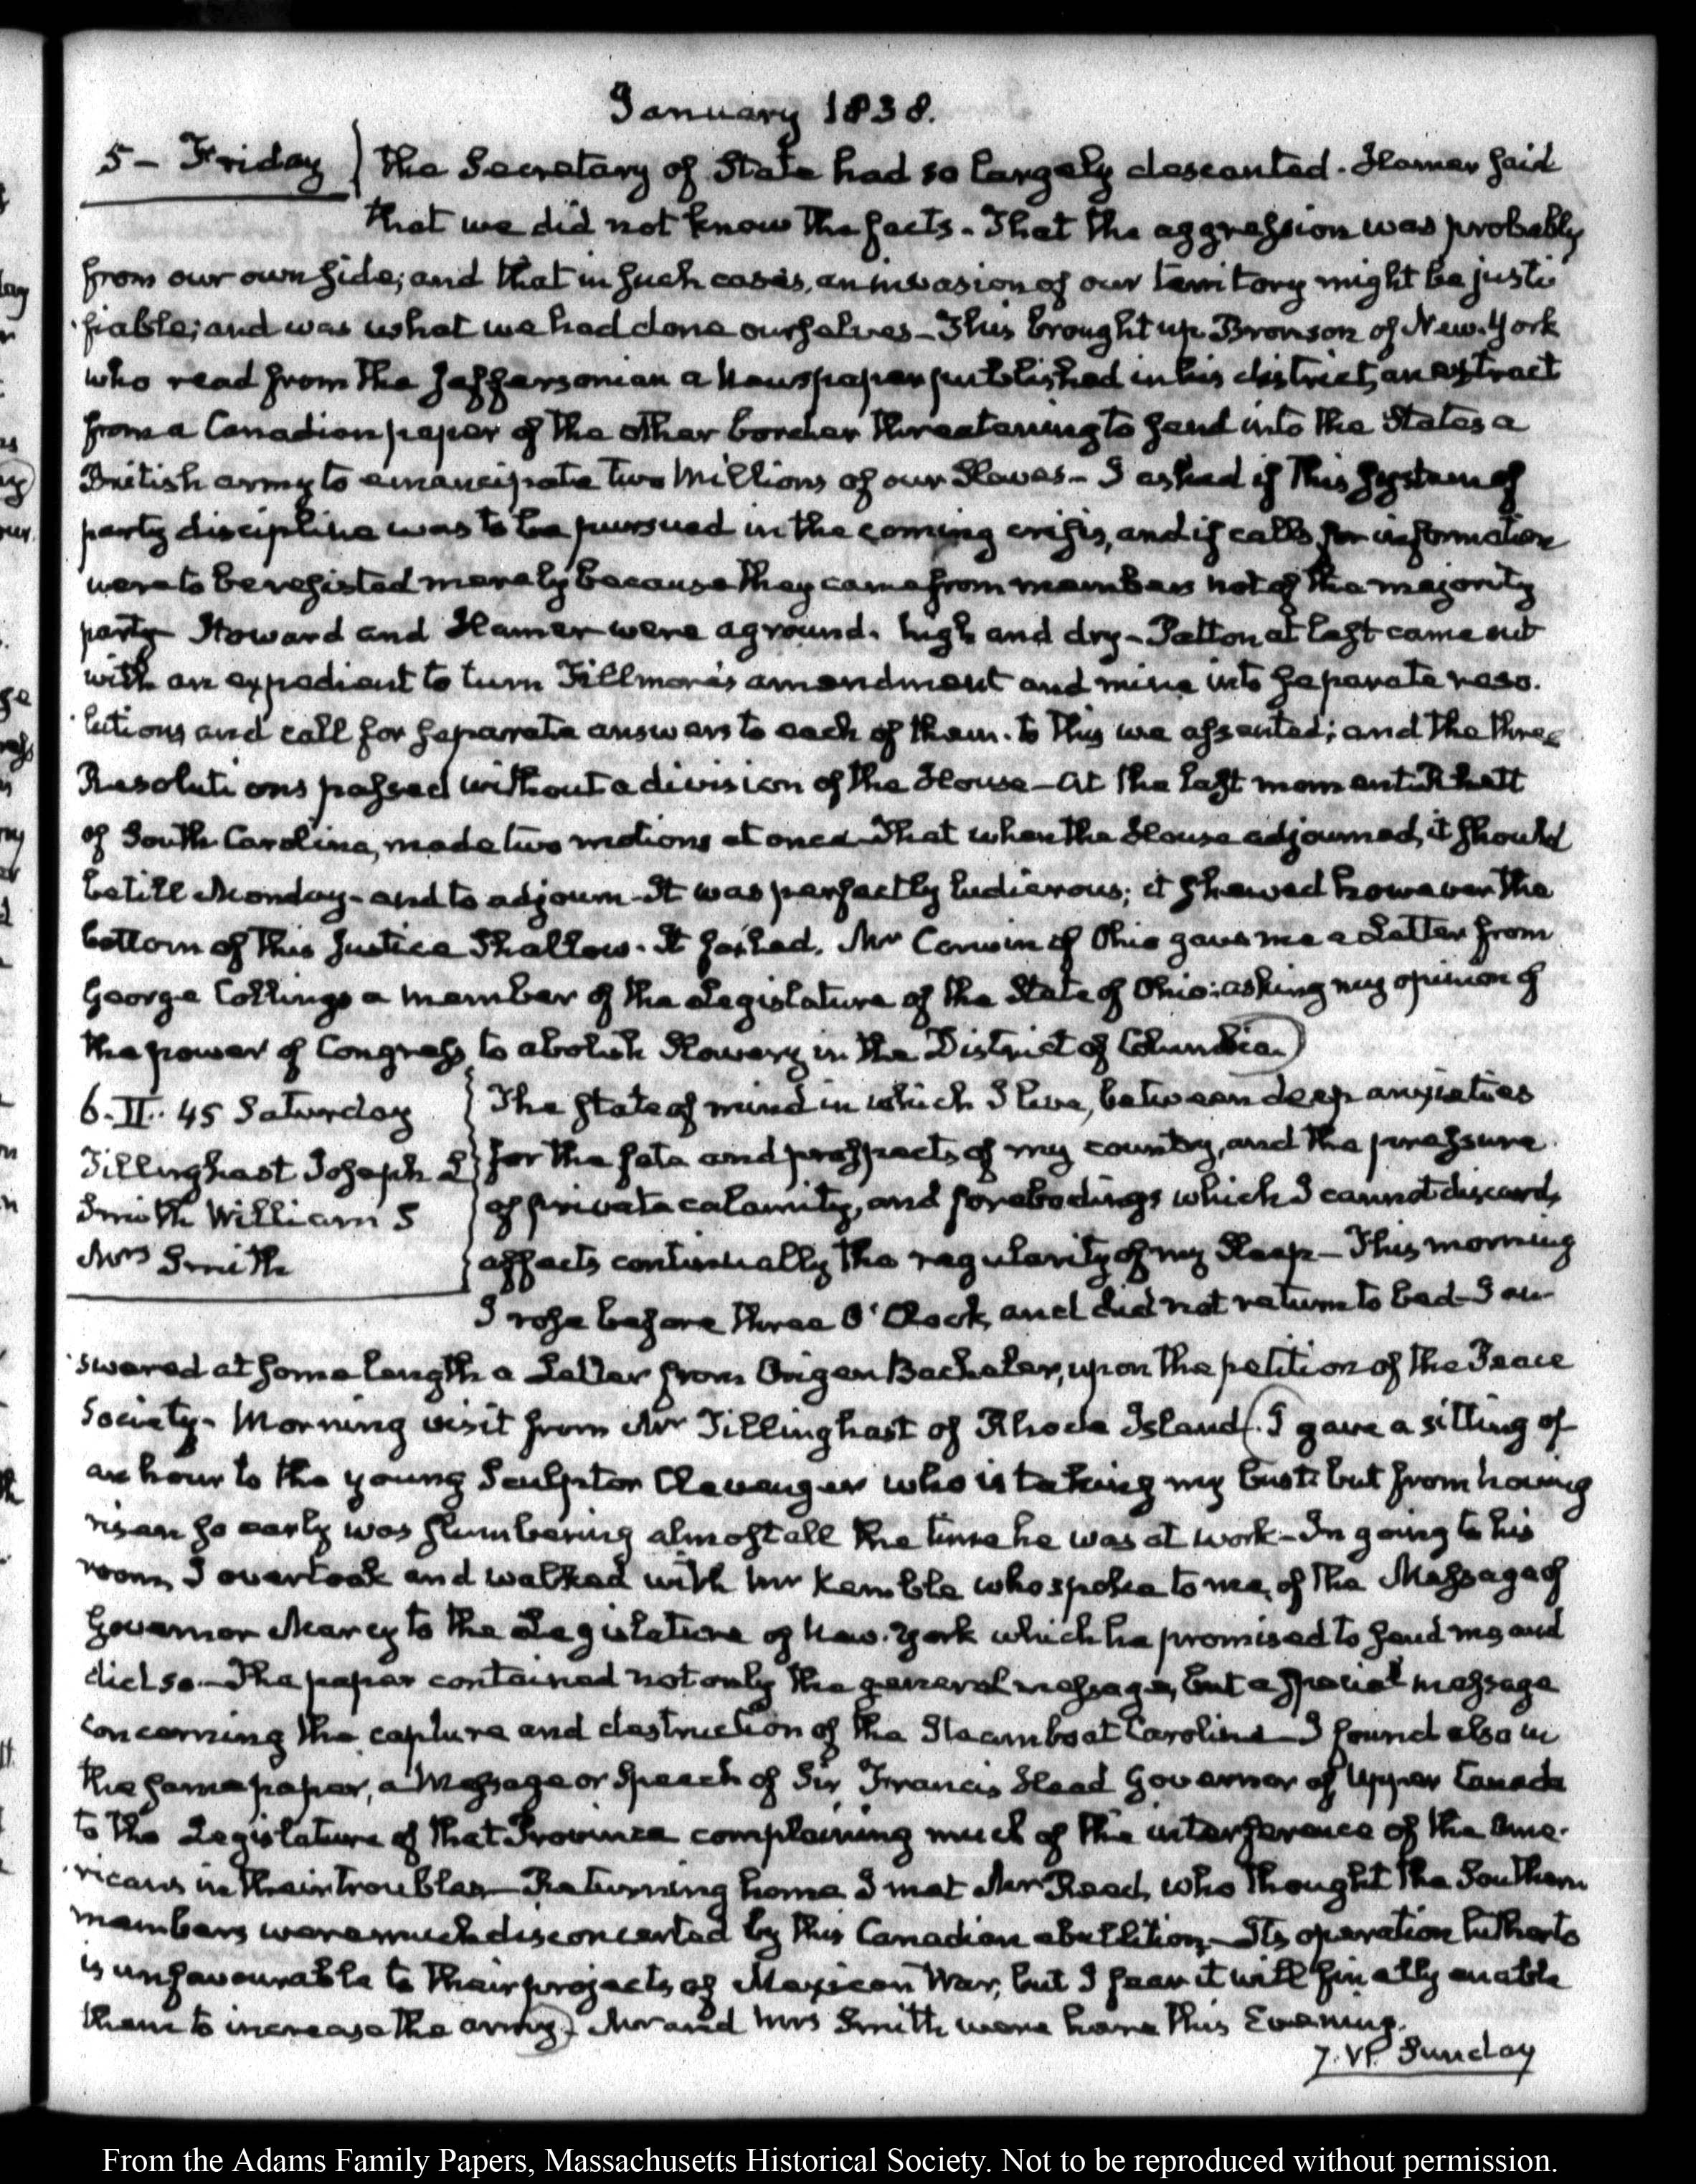 January 1838.
5 – Friday
the Secretary of State had so largely descanted. Hamer said
that we did not know the facts. That the aggression was probably
from our own side; and that in such cases, an invasion of our territory might be justi
fiable; and was what we had done ourselves – This brought up Bronson of New-York
who read from the Jeffersonian a Newspaper published in his district, an extract
from a Canadian paper of the other border threatening to send into the States a
British army to emancipate two Millions of our Slaves – I asked if this system of
party discipline was to be pursued in the coming crisis, and if calls for information
were to be resisted merely because they came from members not of the majority
party – Howard and Hamer were aground. high and dry – Patton at last came out
with an expedient to turn Fillmore's amendment and mine into separate reso-
lutions and call for separate answers to each of them. to this we assented; and the three
Resolutions passed without a division of the House – At the last moment Rhett
of South Carolina, made two motions at once – That when the House adjourned, it should
be till Monday – and to adjourn – It was perfectly ludicrous; it shewed however the
bottom of this Justice Shallow. It failed. Mr Corwin of Ohio gave me a Letter from
George Collings a member of the Legislature of the State of Ohio: asking my opinion of
the power of Congress, to abolish Slavery in the District of Columbia.)
6. II.. 45 Saturday
Tillinghast Joseph L
Smith William S
Mrs Smith
The state of mind in which I live, between deep anxieties
for the fate and prospects of my country, and the pressure
of private calamity, and forebodings which I cannot discard,
affects continually the regularity of my Sleep – This morning
I rose before three O'Clock, and did not return to bed – I an-
swered at some length a Letter from Origen Bacheler, upon the petition of the Peace
Society – Morning visit from Mr Tillinghast of Rhode Island. (I gave a sitting of
an hour to the young Sculptor Clevenger who is taking my bust: but from having
risen so early was slumbering almost all the time he was at work – In going to his
room, I overtook and walked with Mr Kemble who spoke to me, of the Message of
Governor Marcy to the Legislature of New-York which he promised to send me and
did so. – The paper contained not only the general message, but a special message
concerning the capture and destruction of the Steamboat Caroline – I found also in
the same paper, a Message or Speech of Sir Francis Head Governor of Upper Canada
to the Legislature of that Province complaining much of the interference of the Ame-
ricans in their troubles – Returning home I met Mr Reed, who thought the Southern
members were much disconcerted by this Canadian ebullition – Its operation hitherto
is unfavourable to their projects of Mexican War, but I fear it will finally enable
them to increase the army.) Mr and Mrs Smith were here this Evening.
7. VI. Sunday
From the Adams Family Papers, Massachusetts Historical Society. Not to be reproduced without permission.